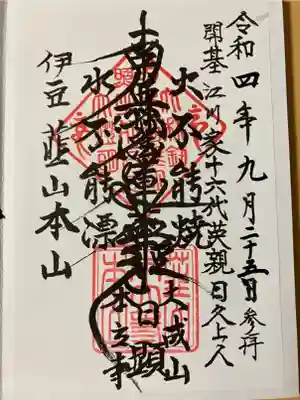 令和四年九月二十五日参拝
開基 江川家十六代英親 日久上人
火不能焼
大成山
南無妙法蓮華経
日顕
本立寺
水不能漂
伊豆 韮山本山